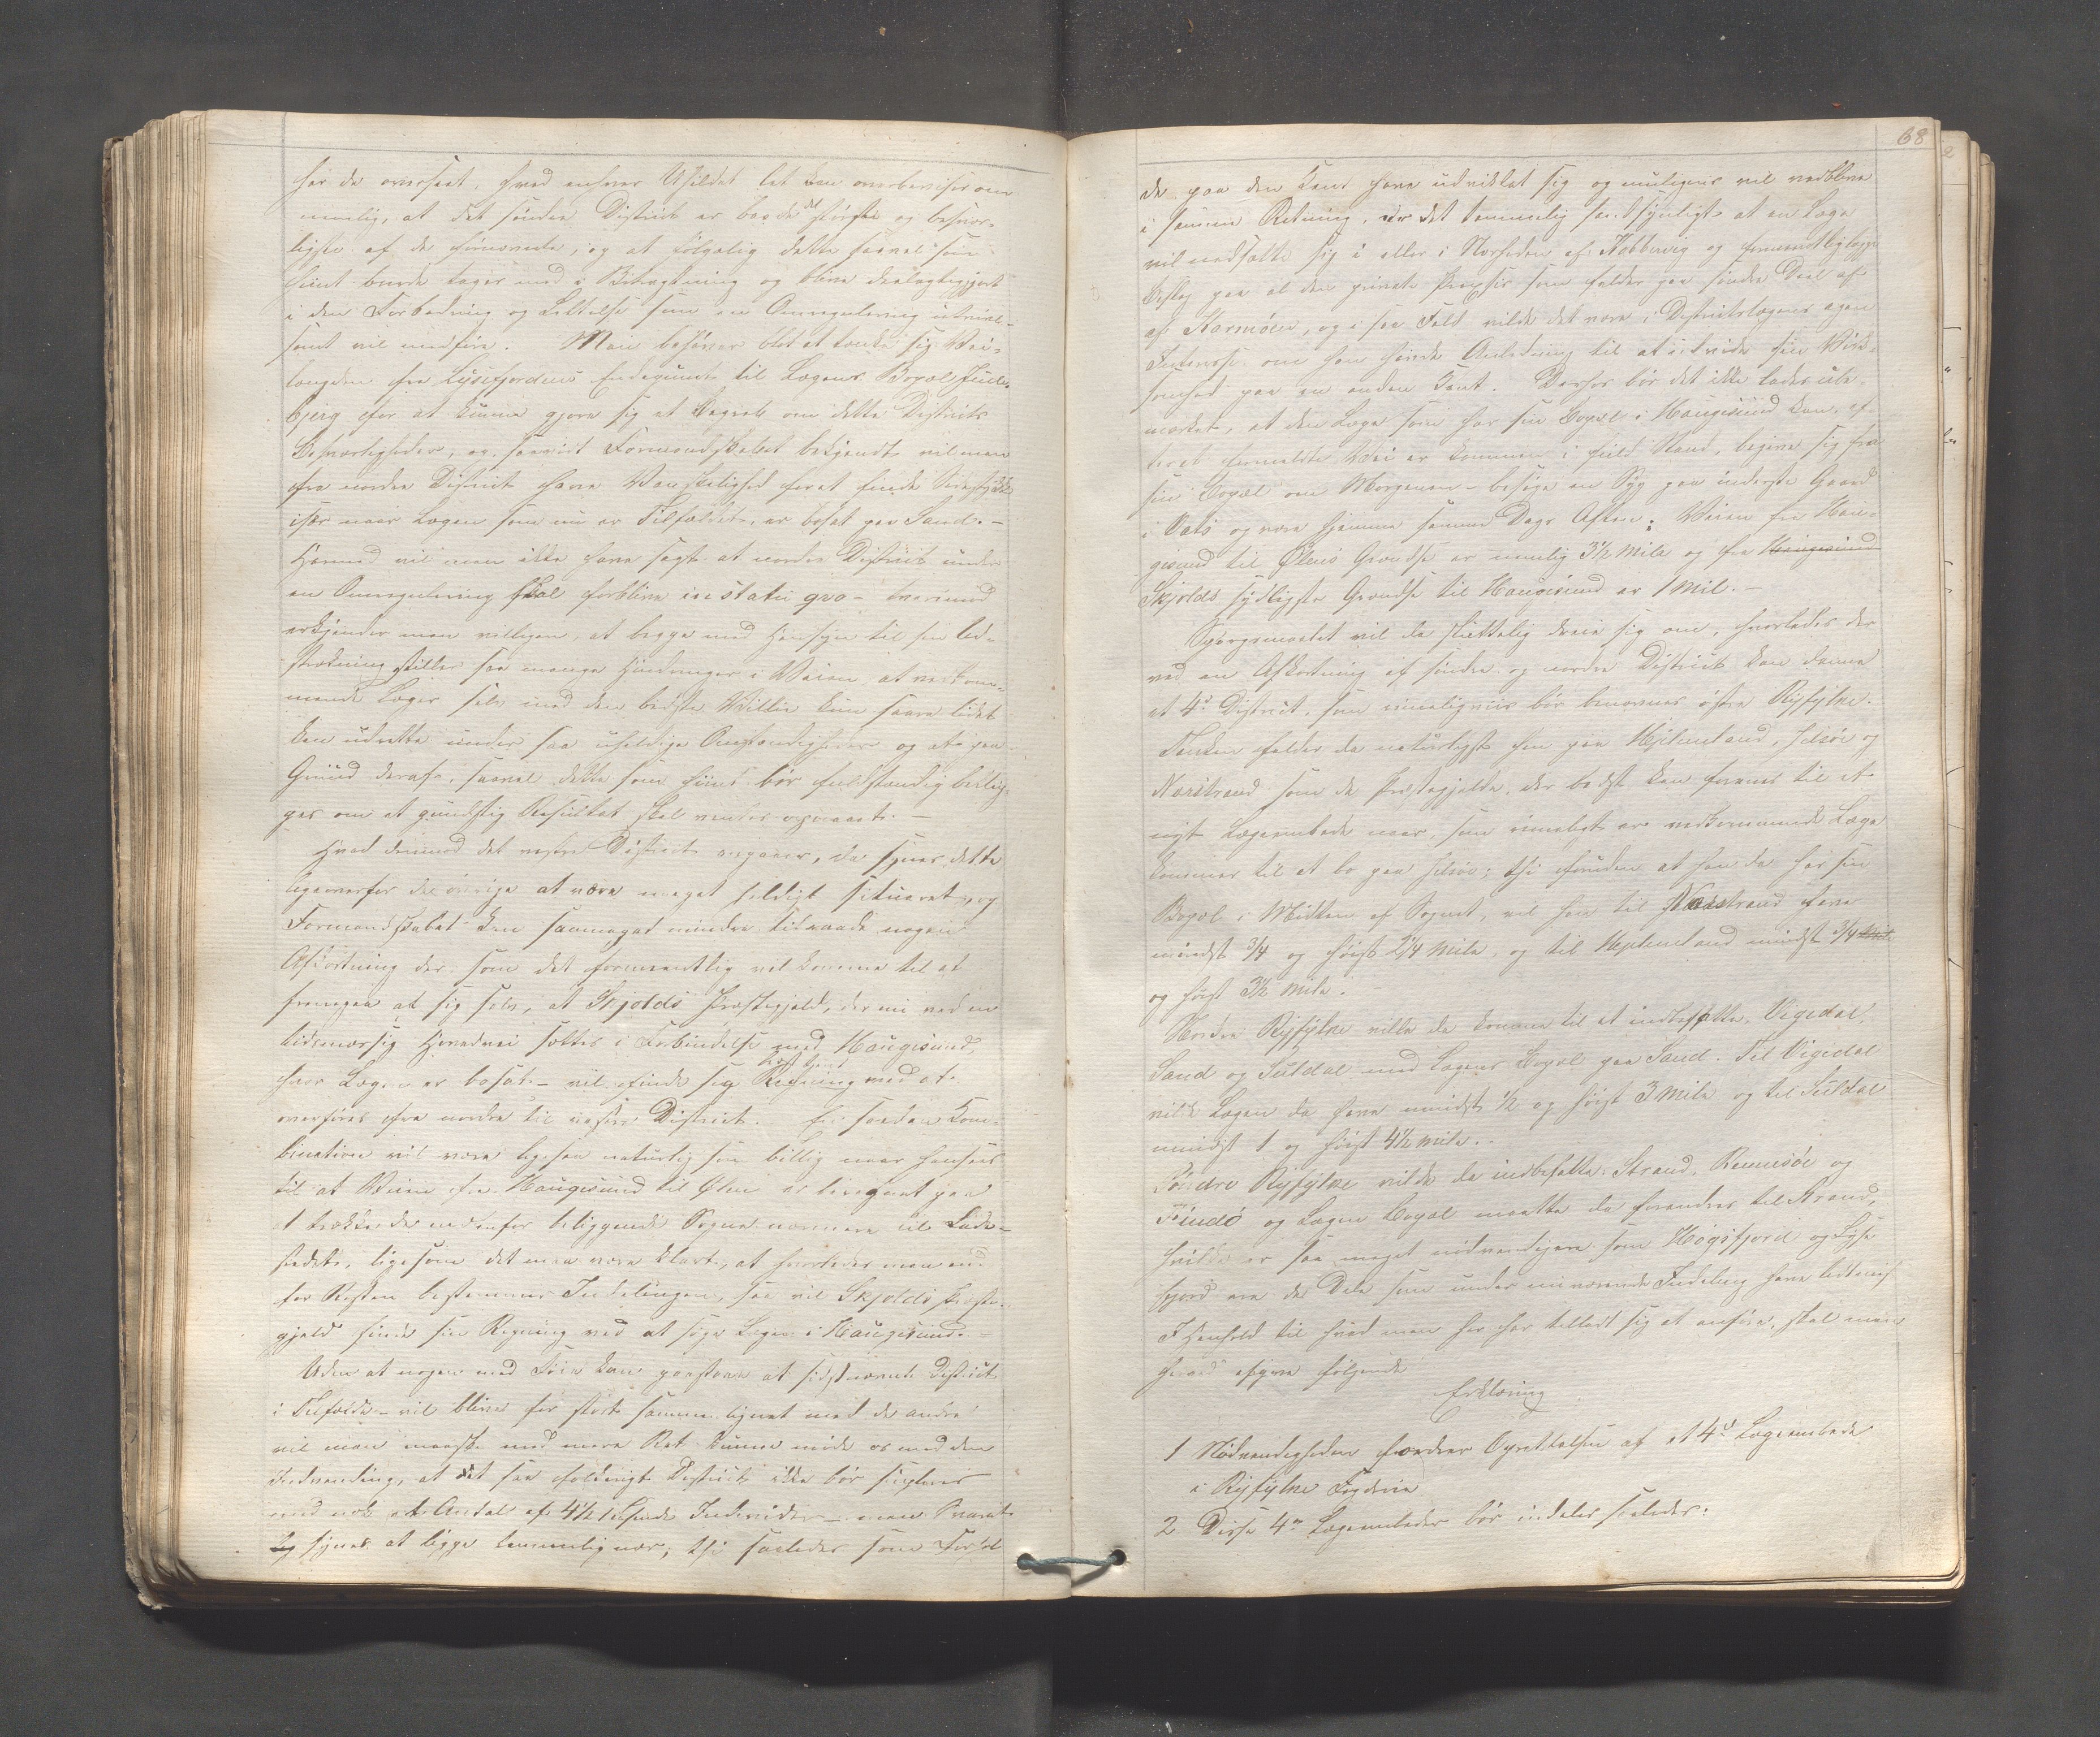 har da overseet, hvad enhver Uhildet let kan overbevises om
nemlig, at det søndre District er baade det største og besvær-
ligste af de firnævnte, og at følgelig dette saavel som
hint burde tages med i Betragtning og blive deelagtiggjort
i den Forbedring og Lettelse som en Omregulering utvivl-
somt vil medføre. Man behøver blot at tænke sig Vei-
længden fra Lysefjordens Endepunct til Lægens Bopæl
bjerg for at kunne gjøre sig et Begreb om dette Districts
Besværligheder, og saavidt Formandskabet bekjendt vil man
fra nordre District have Vanskelighed for at finde Sidestykke
især naar Lægen som nu er Tilfældet, er bosat paa Sand. -
Hermed vil man ikke have sagt at nordre District under
en Omregulering skal forblive in statu qvo - tvertimod
erkjender man villigen, at begge med Hensyn til sin Ud-
strækning stiller saa mange Hindringer i Veien, at vedkom-
mende Læger selv med den bedste Villie kun saare lidet
kan udrette under saa uheldige Omstændigheder og at paa
Grund deraf, saavel dette som hiint bør fuldstændig
ges om et gunstig Resultat skal ventes opnaaet. -
Hvad derimod det vestre District angaaer, da synes dette
ligeoverfor de øvrige at være meget heldigt situeret, og
Formandskabet kan saameget mindre tilraade nogen
Afkortning der som det formeentlig vil komme til at
fremgaa af sig selv, at Skjolds Præstegjeld, der nu ved en
tidsmæssig Hovedvei sættes i Forbindelse med Haugesund,
hvor Lægen er bosat - vil finde sig bedst tjent Regning ved at
overføres fra nordre til vestre District. En saadan Kom-
bination vil være ligesaa naturlig som billig naar henseës
til at Veien fra Haugesund til Ølen er beregnet paa
at trække de udenfor beliggende Sogne nærmere til Lade-
stedet, ligesom det maa være klart, at hvorledes man end
for Resten bestemmer Inddelingen, saa vil Skjolds Præste-
gjeld finde sin Regning ved at søge Lægen i Haugesund. -
Uden at nogen med Føie kan paastaae at sidstnævnte District
i Tilfælde - vil blive for stort sammenlignet med de andre
vil man maaske med mere Ret kunne møde os med den
Indvending, at det saa folkerigt District ikke bør forøges
med nok et Antal af 4½ tusinde Individer - men Svaret
synes at ligge temmelig nær, thi saaledes som Forhol
68
de paa den Kant have udviklet sig og muligens vil vedblive
i samme Retning, er det temmelig sandsynligt at en Læge
vil nedsætte sig i eller i Nærheden af Kobbervig og formentlig lægge
Beslag paa al den private Praxsis som falder paa søndre Deel af
af Karmøen, og i saa Fald vilde det være i Districtslægens egen
Interesse om han havde Anledning til at udvide sin Virk-
somhed paa en anden Kant. Derhos bør det ikke lades ube-
mærket, at den Læge som har sin Bopæl i Haugesund kan, ef-
terat formeldte Vei er kommen i fuld Stand, begive sig fra
sin Bopæl om Morgenen - besøge en Syg paa inderste Gaard
i Vats og være hjemme samme Dags Aften: Veien fra Hau-
gesund til Ølens Grændse er nemlig 3½ Mile og fra Haugesund
Skjolds sydligste Grændse til Haugesund er 1 Mil. -
Spørgsmaalet vil da sluttelig dreie sig om, hvorledes der
ved en Afkortning af søndre og nordre District kan danne
et 4de District, som rimeligviis bør benævnes østre Ryfylke.
Tanken falder da naturligst hen paa Hjelmeland, Jelsøe og
Nærstrand som de Præstegjelde, der bedst kan forenes til et
nyt Lægeembede naar, som rimeligt er vedkommende Læge
kommer til at bo paa Jelsøe; thi foruden at han da har sin
Bopæl i Midten af Sognet, vil han til Nærstrand have
mindst 3/4 og høist 2 1/4 Mile, og til Hjelmeland mindst 3/4 Mile
og høist 3½ Mile.
Nordre Ryfylke ville da komme til at indbefatte Vigedal,
Sand og Suldal med Lægens Bopæl paa Sand. Til Vigedal
vilde Lægen da have mindst ½ og høist 3 Mile og til Suldal
mindst 1 og høist 4½ Mile.
Søndre Ryfylke vilde da indbefatte: Strand, Rennesøe og
Findø og Lægens Bopæl maatte da forandres til Strand,
hvilket er saa meget nødvendigere som Høgsfjord og Lyse
fjord ere de Dele som under nuværende Inddeling have lidt mest
I Henhold til hvad man her har tilladt sig at anføre, skal man
herved afgive følgende
Erklæring
1 Nødvendigheden fordrer Oprettelsen af et 4de Lægeembede
i Ryfylke Fogderie
2 Disse 4re Lægeembeder bør inddeles saaledes: